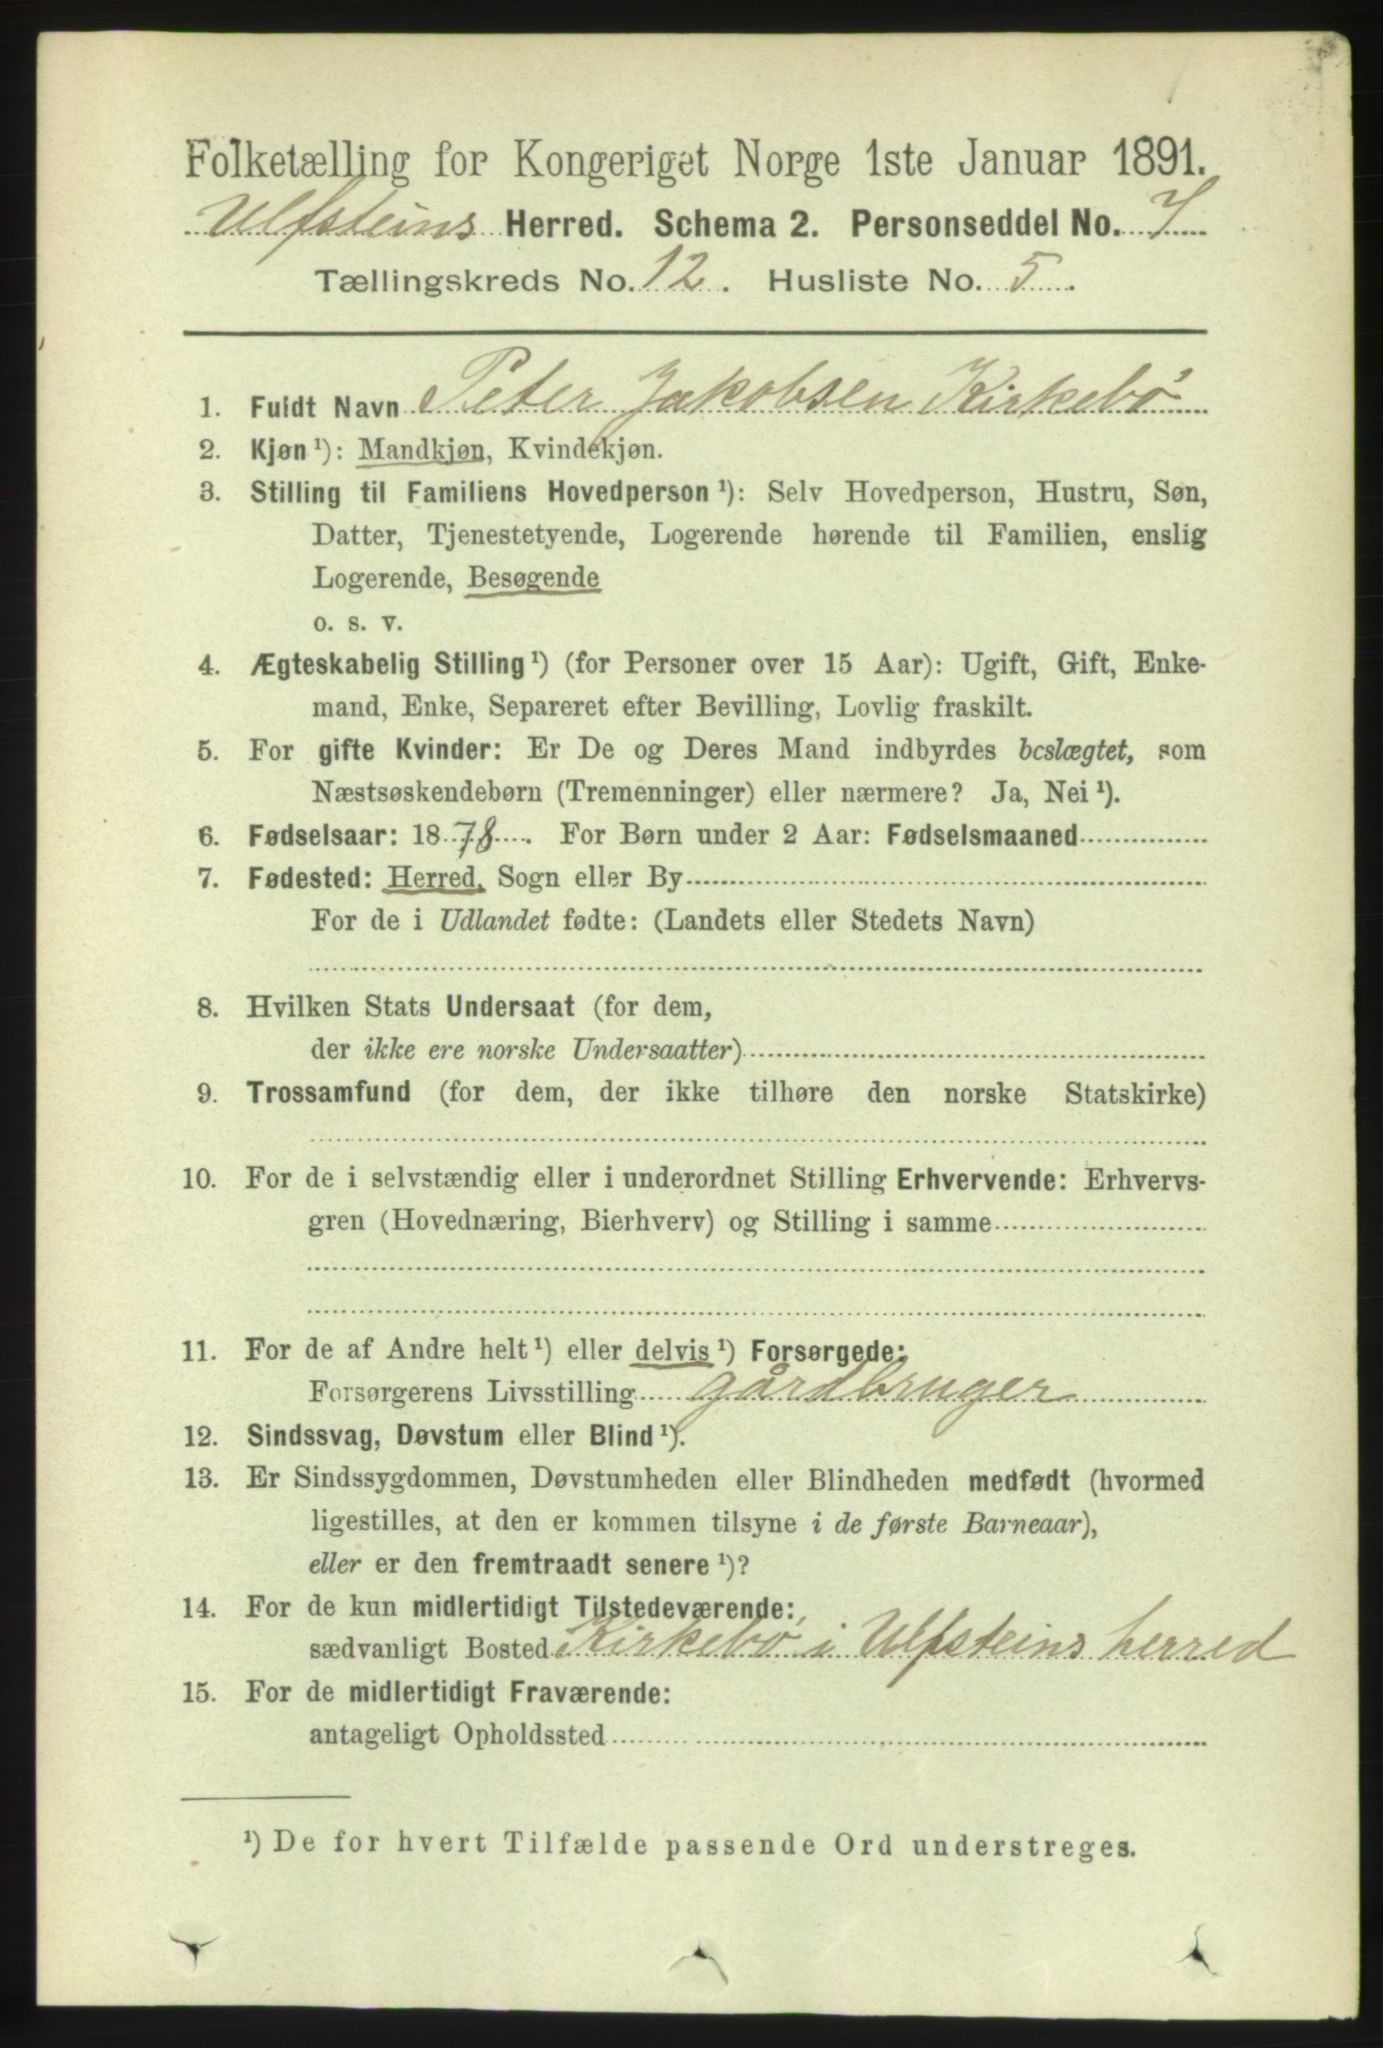 Folketælling for Kongeriget Norge 1ste Januar 1891.
Ulfsteins Herred. Schema 2. Personseddel No. 7
Tællingskreds No. 12. Husliste No. 5.
1. Fuldt Navn Peter Jakobsen Kirkebö
2. Kjøn¹): Mandkjøn, Kvindekjøn.
3. Stilling til Familiens Hovedperson¹): Selv Hovedperson, Hustru, Søn,
Datter, Tjenestetyende, Logerende hørende til Familien, enslig
Logerende, Besøgende
o. s. v.
4. Ægteskabelig Stilling¹) (for Personer over 15 Aar): Ugift, Gift, Enke-
mand, Enke, Separeret efter Bevilling, Lovlig fraskilt.
5. For gifte Kvinder: Er De og Deres Mand indbyrdes beslægtet, som
Næstsøskendebørn (Tremenninger) eller nærmere? Ja, Nei¹).
6. Fødselsaar: 1878. For Børn under 2 Aar: Fødselsmaaned
7. Fødested: Herred, Sogn eller By
For de i Udlandet fødte: (Landets eller Stedets Navn)
8. Hvilken Stats Undersaat (for dem,
der ikke ere norske Undersaatter)
9. Trossamfund (for dem, der ikke tilhøre den norske Statskirke)
10. For de i selvstændig eller i underordnet Stilling Erhvervende: Erhvervs-
gren (Hovednæring, Bierhverv) og Stilling i samme
11. For de af Andre helt¹) eller delvis¹) Forsørgede:
Forsørgerens Livsstilling gårdbruger
12. Sindssvag, Døvstum eller Blind¹).
13. Er Sindssygdommen, Døvstumheden eller Blindheden medfødt (hvormed
ligestilles, at den er kommen tilsyne i de første Barneaar),
eller er den fremtraadt senere¹)?
14. For de kun midlertidigt Tilstedeværende:
sædvanligt Bosted Kirkebö i Ulfsteins herred
15. For de midlertidigt Fraværende:
antageligt Opholdssted
¹) De for hvert Tilfælde passende Ord understreges.